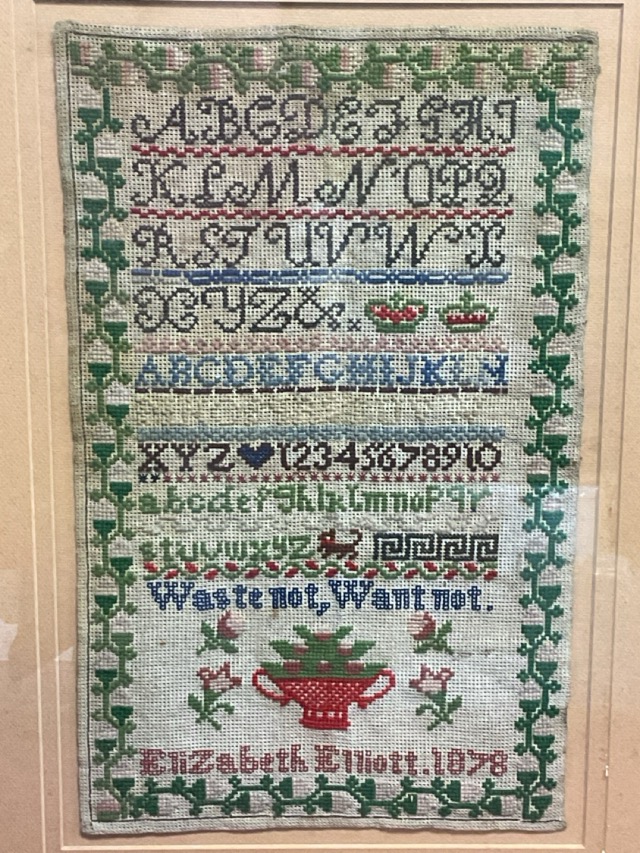 A B C D E F G H I
K L M N O P Q
R S T U V W X
X Y Z &
A B C D E F G H I J K L M
X Y Z 1 2 3 4 5 6 7 8 9 10
a b c d e f g h i k l m n o p q r
s t u v w x y z
Waste not, Want not.
EliZabeth Elliott. 1878